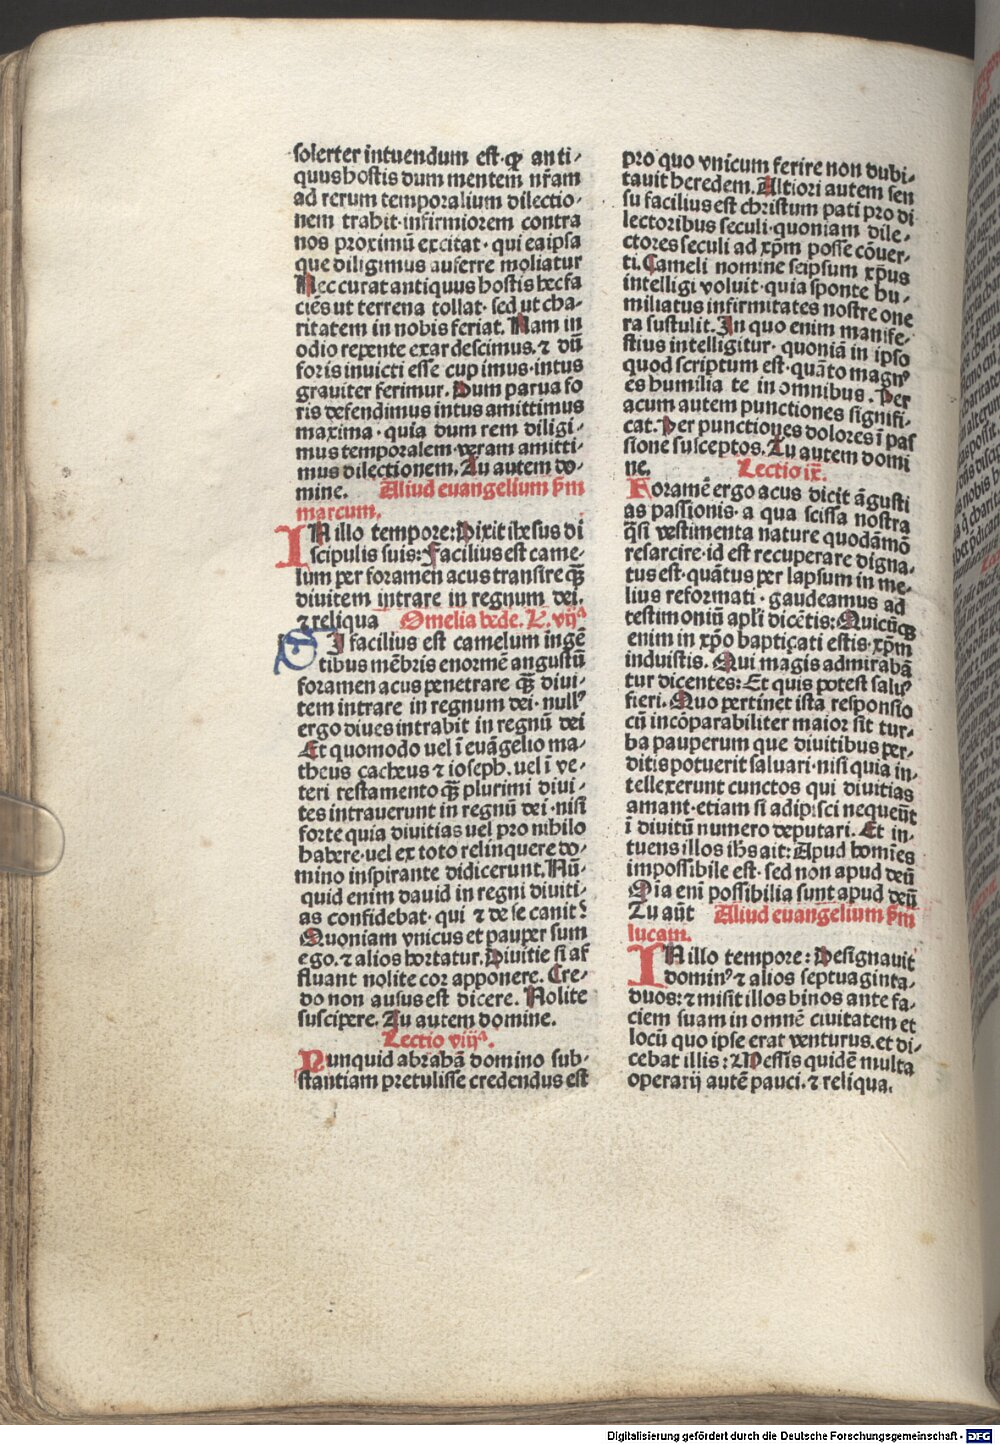 solerter intuendum est· ꝙ anti⸗
quus hostis dum mentem nr̄am
ad rerum temporalium dilectio⸗
nem trahit·infirmiorem contra
nos proximū excitat· qui ea ipsa
que diligimus auferre moliatur
Nec curat antiquus hostis hec fa
ciēs ut terrena tollat· sed ut cha⸗
ritatem in nobis feriat. Nam in
odio repente exardescimus. ⁊ dū
foris inuicti esse cupimus·intus
grauiter ferimur. Dum parua fo
ris defendimus intus amittimus
maxima· quia dum rem diligi⸗
mus temporalem·veram amitti⸗
mus dilectionem. Tu autem do⸗
mine. Aliud euangelium s̄m
marcum.
IN illo tempore: Dixit ihesus di
scipulis suis: Facilius est came⸗
lum per foramen acus transire qꝫ
diuitem intrare in regnum dei.
⁊ reliqua Omelia bede. L. vijᵃ
SI facilius est camelum ingē
tibus mēbris enormē angustū
foramen acus penetrare qꝫ diui⸗
tem intrare in regnum dei· nullꝰ
ergo diues intrabit in regnū dei
Et quomodo uel ī euāgelio ma⸗
theus cacheus ⁊ ioseph. uel ī ve⸗
teri testamento qꝫ plurimi diui⸗
tes intrauerunt in regnū dei· nisi
forte quia diuitias uel pro nihilo
habere·uel ex toto relinquere do⸗
mino inspirante didicerunt. Nū⸗
quid enim dauid in regni diuiti⸗
as confidebat· qui ⁊ de se canit:
Quoniam vnicus et pauper sum
ego. ⁊ alios hortatur. Diuitie si af
fluant nolite cor apponere. Cre⸗
do non ausus est dicere. Nolite
suscipere. Tu autem domine.
Lectio viijᵃ.
Nunquid abrahā domino sub⸗
stantiam pretulisse credendus est
pro quo vnicum ferire non dubi⸗
tauit heredem. Altiori autem sen
su facilius est christum pati pro di
lectoribus seculi·quoniam dile⸗
ctores seculi ad xp̄m posse cōuer⸗
ti. Cameli nomine seipsum xp̄us
intelligi voluit·quia sponte hu⸗
miliatus infirmitates nostre one
ra sustulit. In quo enim manife⸗
stius intelligitur· quoniā in ipso
quod scriptum est·quāto magnꝰ
es humilia te in omnibus. Per
acum autem punctiones signifi⸗
cat. Per punctiones dolores ī pas
sione susceptos. Tu autem domi
ne. Lectio ix̄.
Foramē ergo acus dicit āgusti
as passionis· a qua scissa nostra
q̄si vestimenta nature quodāmō
resarcire·id est recuperare digna⸗
tus est·quātus per lapsum in me⸗
lius reformati· gaudeamus ad
testimoniū apl̄i dicētis: Quicūqꝫ
enim in xp̄o baptiçati estis·xp̄m
induistis. Qui magis admirabā
tur dicentes: Et quis potest saluꝰ
fieri. Quo pertinet ista responsio
cū incōparabiliter maior sit tur⸗
ba pauperum que diuitibus per⸗
ditis potuerit saluari·nisi quia in⸗
tellexerunt cunctos qui diuitias
amant·etiam si adipisci nequeūt
ī diuitū numero deputari. Et in⸗
tuens illos ihs̄ ait: Apud homīes
impossibile est· sed non apud deū
Oīa enī possibilia sunt apud deū
Tu aūt Aliud euangelium s̄m
lucam.
IN illo tempore: Designauit
dominꝰ ⁊ alios septuaginta⸗
duos: ⁊ misit illos binos ante fa⸗
ciem suam in omnē ciuitatem et
locū quo ipse erat venturus. et di⸗
cebat illis: Messis quidē multa
operarij autē pauci. ⁊ reliqua.
Digitalisierung gefördert durch die Deutsche Forschungsgemeinschaft - DFG